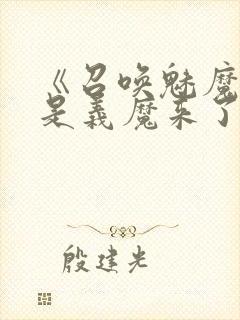 《召唤魅魔
是義魔来了
殷建光